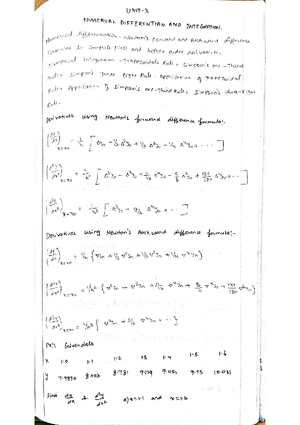 UNIT-3
NUMERICAL DIFFERENTIAN AND INTEGRATION.
Numerical differentiation - Newton's Forward and Backward difference
Formulae to compute First and higher order derivatives.
Numerical Integration - Trapezoidal Rule - Simpson's one - Third
Rule - Simpson's Three Eight Rule - Application of Trapezoidal
Rule - Application of Simpson's one-Third Rule, Simpson's three-Eight
Rule.
Derivatives using Newton's forward difference formula:-
(dy/dx) x=x0 = 1/h [ Δy0 - 1/2 Δ²y0 + 1/3 Δ³y0 - 1/4 Δ⁴y0 + ... ]
(d²y/dx²) x=x0 = 1/h² [ Δ²y0 - Δ³y0 + 11/12 Δ⁴y0 - 5/6 Δ⁵y0 + ... ]
Derivatives using Newton's Backward difference formula:-
(dy/dx) x=xn = 1/h { ∇yn + 1/2 ∇²yn + 1/3 ∇³yn + 1/4 ∇⁴yn }
(d²y/dx²) x=xn = 1/h² { ∇²yn + ∇³yn + 11/12 ∇⁴yn
Given data
x 1.0 1.1 1.2 1.3 1.4 1.5 1.6
y 8.403 8.781 9.129 9.451 9.75 10.031
Find dy/dx & d²y/dx² a) x=1.1 and x=1.6